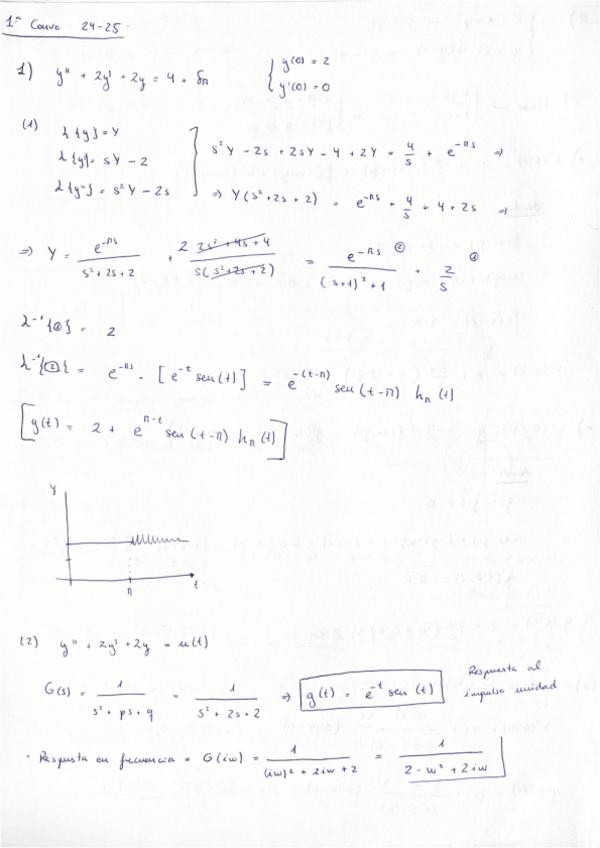 1ª Convo 24-25.
1) y'' + 2y' + 2y = 4 + δπ { y(0) = 2
y'(0) = 0
(1) L{y} = Y
L{y'} = sY - 2
L{y''} = s²Y - 2s
s²Y - 2s + 2sY - 4 + 2Y = 4/s + e^(-πs) ⇒
⇒ Y(s² + 2s + 2) = e^(-πs) + 4/s + 4 + 2s ⇒
⇒ Y = e^(-πs)/(s² + 2s + 2) + 2 (2s² + 4s + 4)/(s(s² + 2s + 2)) = e^(-πs)/((s+1)² + 1) ② + 2/s ①
L⁻¹{①} = 2
L⁻¹{②} = e^(-πs) · [e^(-t) sen(t)] = e^(-(t-π)) sen(t-π) hπ(t)
[y(t) = 2 + e^(π-t) sen(t-π) hπ(t)]
y
π
t
(2) y'' + 2y' + 2y = u(t)
G(s) = 1/(s² + ps + q) = 1/(s² + 2s + 2) ⇒ g(t) = e^(-t) sen(t) Respuesta al
impulso unidad
· Respuesta en frecuencia = G(iw) = 1/((iw)² + 2iw + 2) = 1/(2 - w² + 2iw)